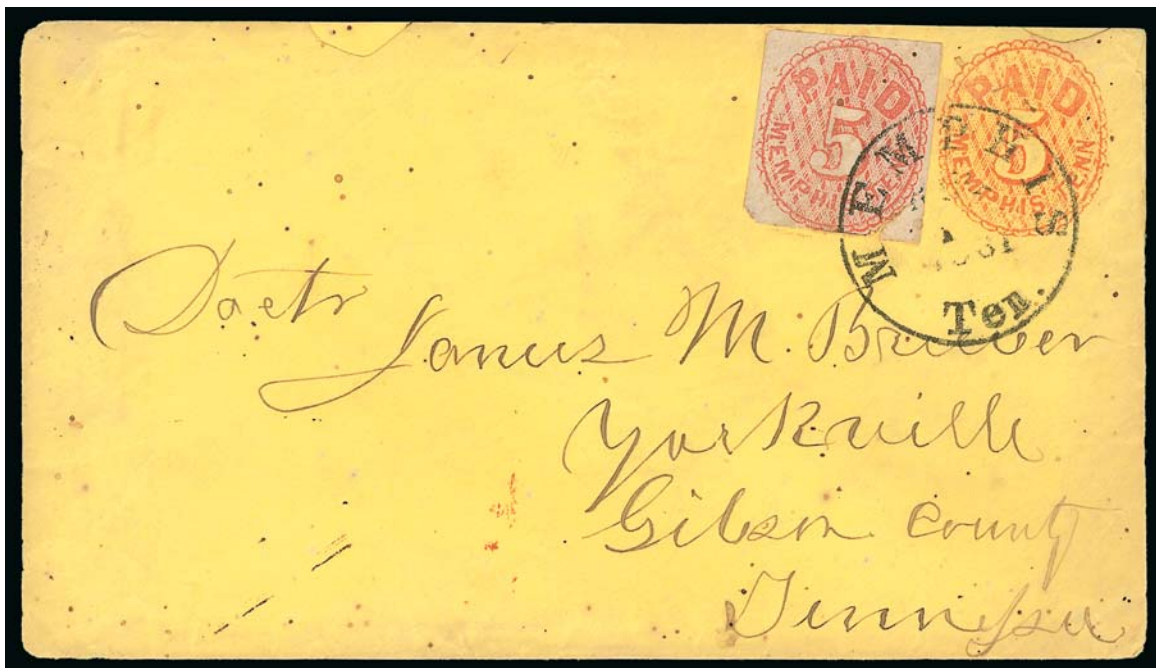 PAID
5
MEMPHIS, TENN
PAID
5
MEMPHIS, TENN
MEMPHIS
1861
Ten.
Doctr
James M. Bruber
Yorkville
Gibson County
Tennessee